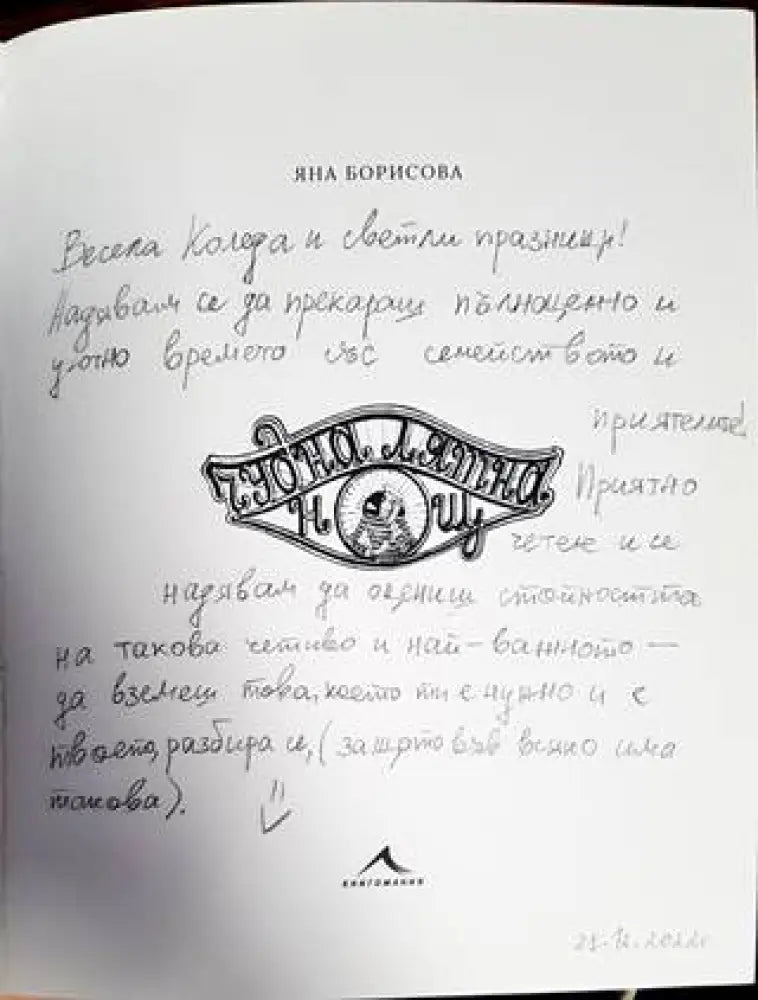 ЯНА БОРИСОВА
Весела Коледа и светли празници!
Надявам се да прекараш пълноценно и
уютно времето със семейството и
приятелите!
ЧУДНА ЛЯТНА
НОЩ
Приятно
четене и се
надявам да оцениш стойността
на такова четиво и най-важното —
да вземеш това, което ти е нужно и е
твоето, разбира се, (защото във всяко има
такова).
КНИГОМАНИЯ
12.2022г